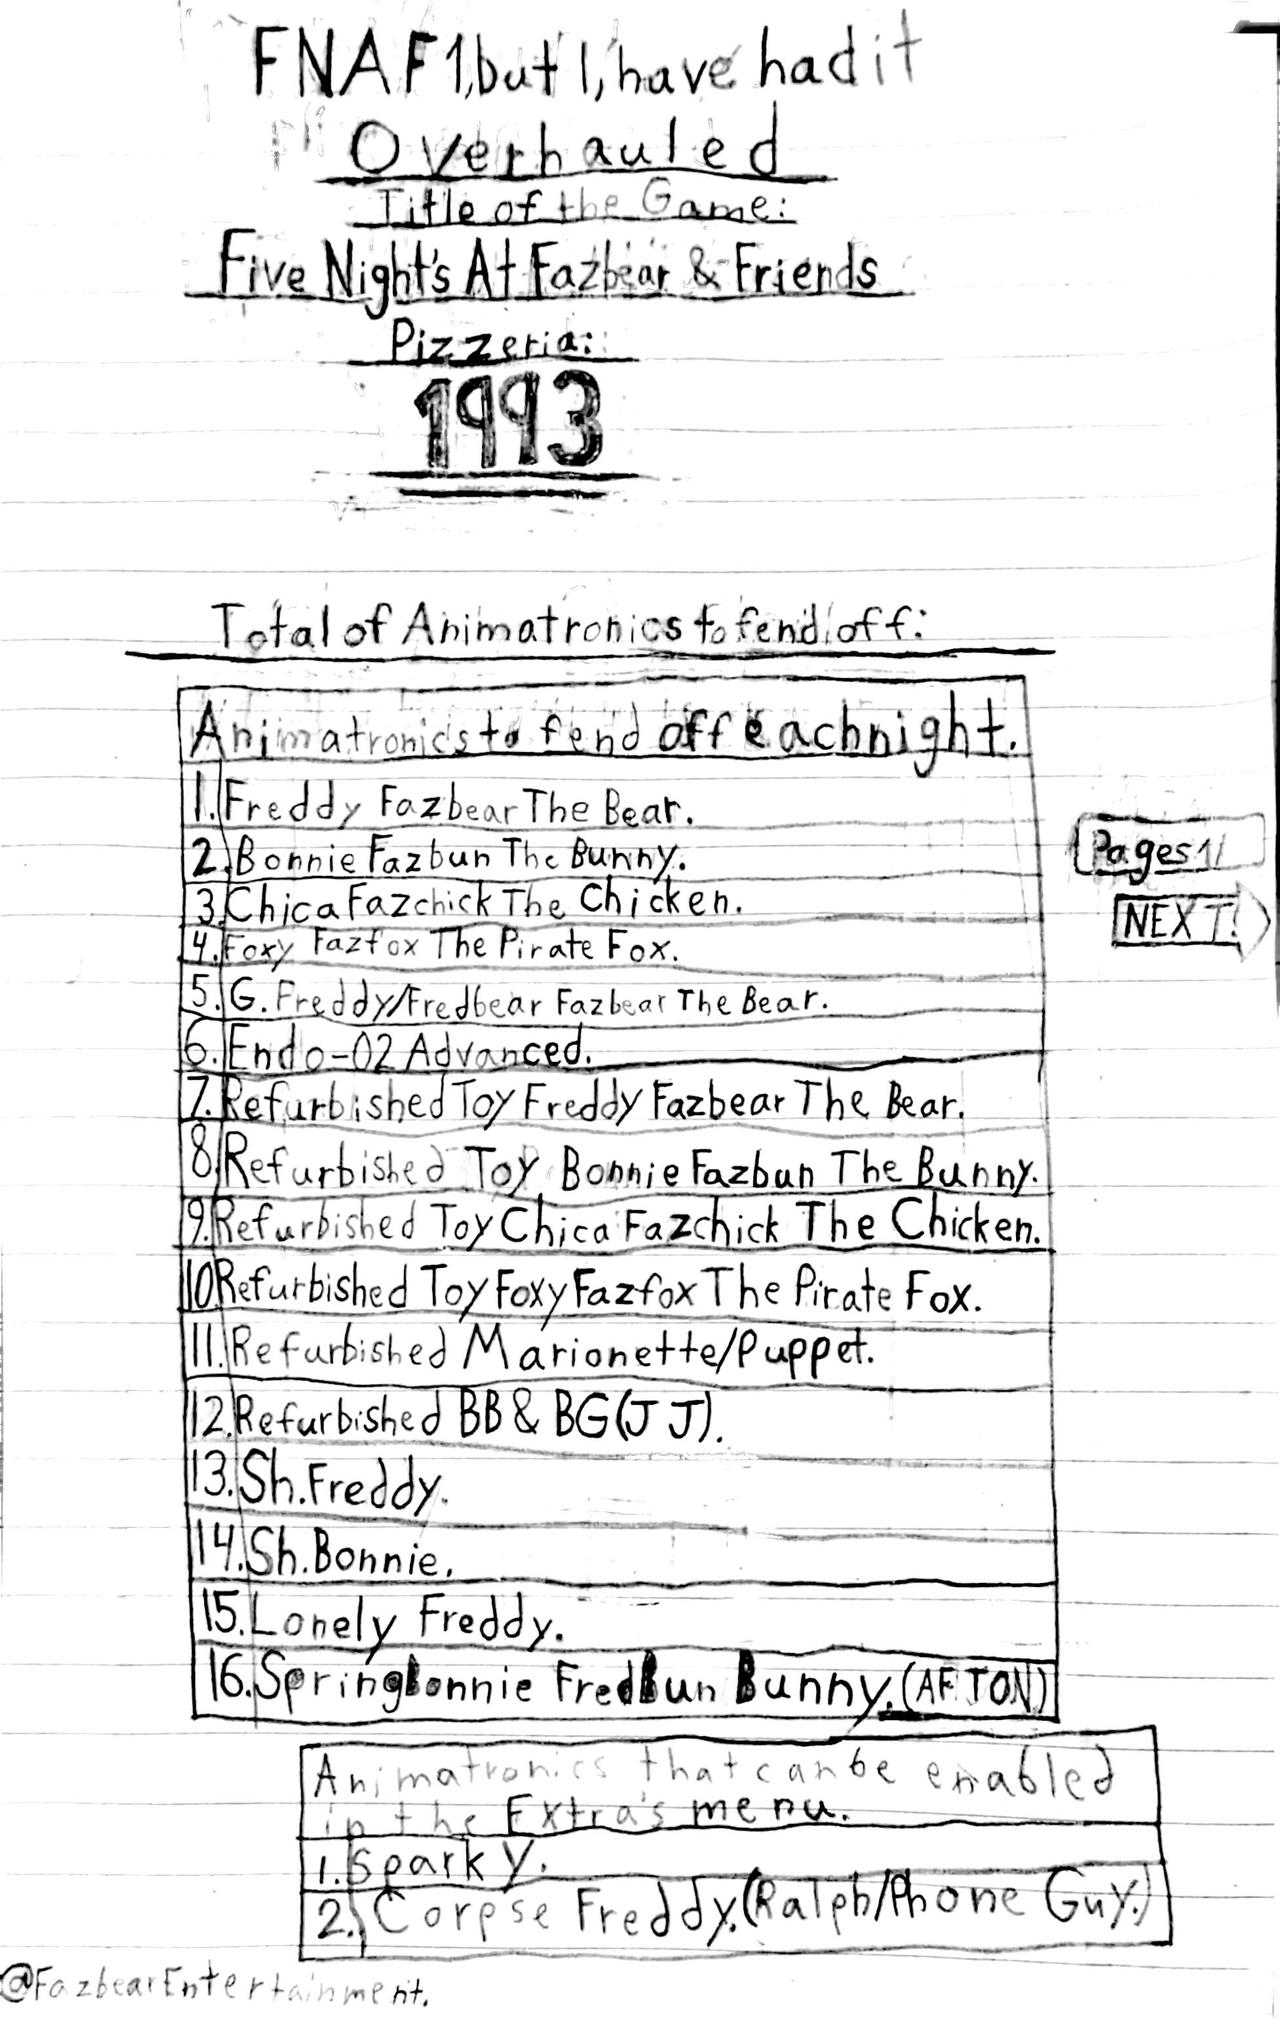 FNAF1, but I, have had it
Overhauled
Title of the Game:
Five Night's At Fazbear & Friends
Pizzeria:
1993
Total of Animatronics to fend off:
Animatronics to fend off each night.
1. Freddy Fazbear The Bear.
2. Bonnie Fazbun The Bunny.
3. Chica Fazchick The Chicken.
4. Foxy Fazfox The Pirate Fox.
5. G. Freddy/Fredbear Fazbear The Bear.
6. Endo-02 Advanced.
7. Refurbished Toy Freddy Fazbear The Bear.
8. Refurbished Toy Bonnie Fazbun The Bunny.
9. Refurbished Toy Chica Fazchick The Chicken.
10 Refurbished Toy Foxy Fazfox The Pirate Fox.
11. Refurbished Marionette/Puppet.
12. Refurbished BB & BG (JJ).
13. Sh. Freddy.
14. Sh. Bonnie.
15. Lonely Freddy.
16. Springbonnie FredBun Bunny. (AFTON)
Pages 1/
NEXT!
Animatronics that can be enabled
in the Extra's menu.
1. Sparky.
2. Corpse Freddy. (Ralph/Phone Guy.)
@FazbearEntertainment.